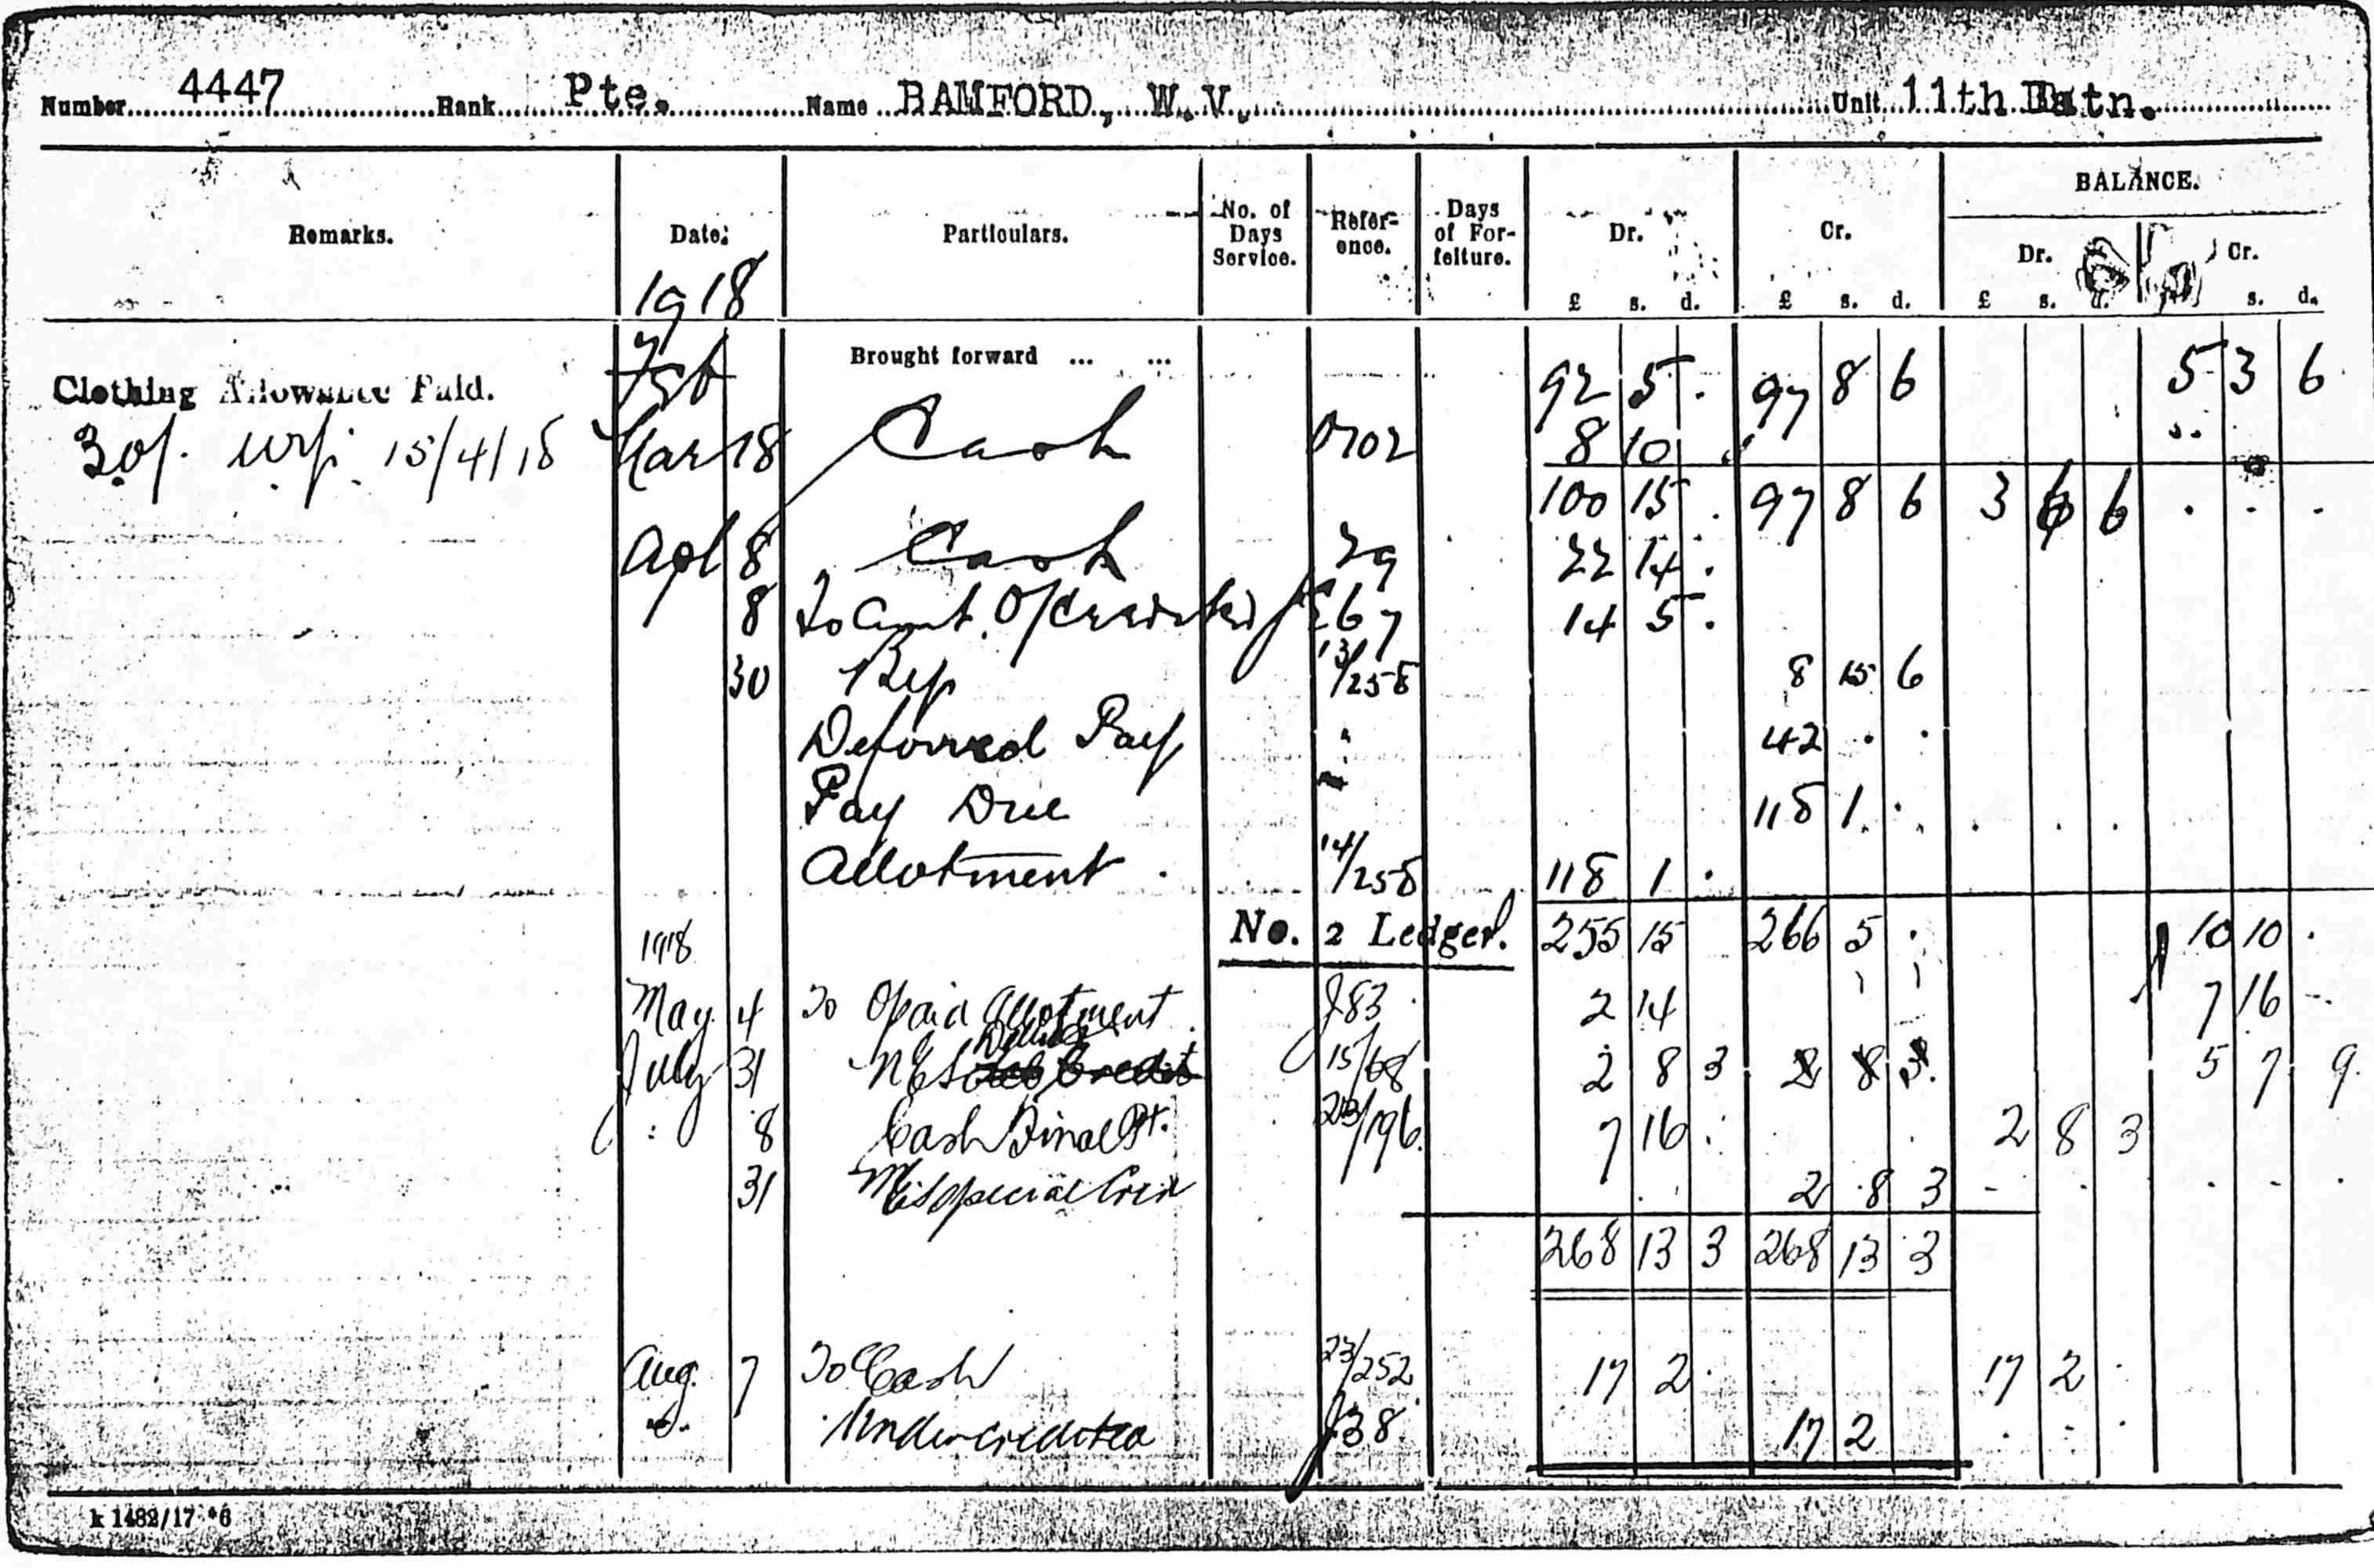 Number 4447 Rank Pte. Name BAMFORD, W. V. Unit 11th Batn.
BALANCE.
Remarks. Date. Particulars. No. of Days Service. Refer-ence. Days of For-feiture. Dr. Cr. Dr. Cr.
£ s. d. £ s. d. £ s. d. s. d.
1918
Feb Brought forward ... ... 92 5 . 97 8 6 5 3 6
Clothing Allowance Paid.
30/. 15/4/18 Mar 18 Cash 0702 8 10 .
100 15 . 97 8 6 3 6 6 . . .
Apl 8 Cash 29 22 14 .
8 To Amt. 67 14 5 .
30 Rep 13/258 8 15 6
Deferred Pay " 42 . .
Pay Due " 118 1 . . . .
Allotment 14/258 118 1 .
1918 No. 2 Ledger. 255 15 266 5 . 10 10 .
May 4 To Opaid Allotment J83 2 14 7 16 -
July 31 15/68 2 8 3 2 8 3 5 7 9
" 8 Cash Final Pt. 23/196 7 16 . 2 8 3
31 Special Cred 2 8 3 - . . . - .
268 13 3 268 13 3
Aug. 7 To Cash 23/252 17 2 . 17 2 .
Undercredited J38. 17 2 . - .
k 1482/17 *6